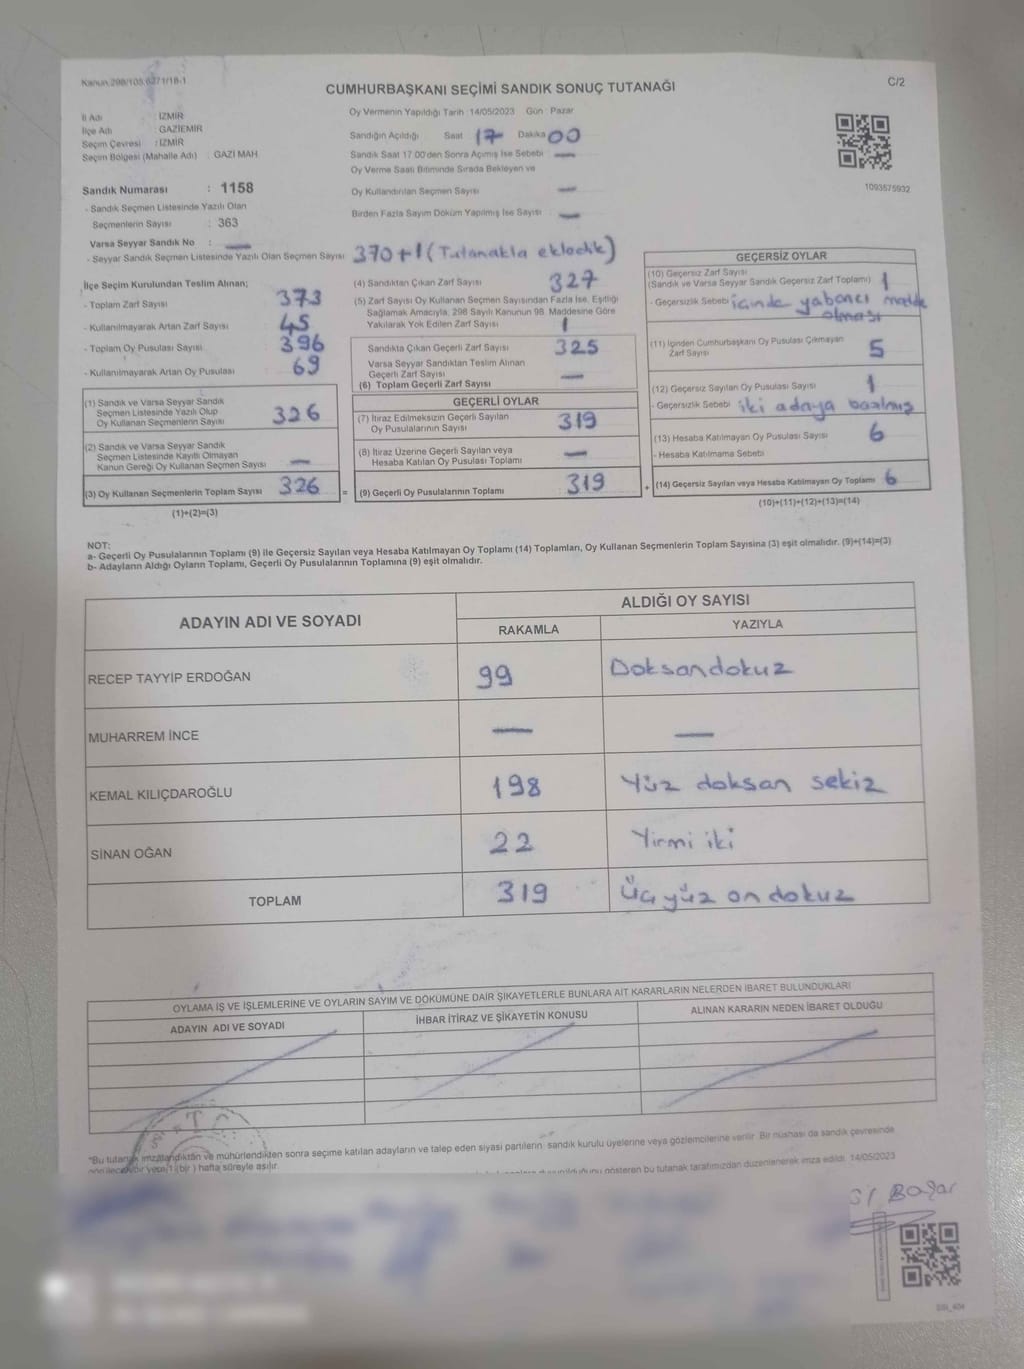 Kanun 298/105,6271/18-1
CUMHURBAŞKANI SEÇİMİ SANDIK SONUÇ TUTANAĞI
C/2
İl Adı : İZMİR
İlçe Adı : GAZİEMİR
Seçim Çevresi : İZMİR
Seçim Bölgesi (Mahalle Adı) : GAZİ MAH
Sandık Numarası : 1158
- Sandık Seçmen Listesinde Yazılı Olan
Seçmenlerin Sayısı : 363
Varsa Seyyar Sandık No : —
- Seyyar Sandık Seçmen Listesinde Yazılı Olan Seçmen Sayısı
370+1 (Tutanakla ekledik)
Oy Vermenin Yapıldığı Tarih :14/05/2023 Gün : Pazar
Sandığın Açıldığı Saat 17 Dakika 00
Sandık Saat 17.00'den Sonra Açımış İse Sebebi : —
Oy Verme Saati Bitiminde Sırada Bekleyen ve
Oy Kullandırılan Seçmen Sayısı —
Birden Fazla Sayım Döküm Yapılmış İse Sayısı : —
1093575932
İlçe Seçim Kurulundan Teslim Alınan;
- Toplam Zarf Sayısı 373
- Kullanılmayarak Artan Zarf Sayısı 45
- Toplam Oy Pusulası Sayısı 396
- Kullanılmayarak Artan Oy Pusulası 69
(1) Sandık ve Varsa Seyyar Sandık
Seçmen Listesinde Yazılı Olup
Oy Kullanan Seçmenlerin Sayısı 326
(2) Sandık ve Varsa Seyyar Sandık
Seçmen Listesinde Kayıtlı Olmayan
Kanun Gereği Oy Kullanan Seçmen Sayısı —
(3) Oy Kullanan Seçmenlerin Toplam Sayısı 326
(1)+(2)=(3)
(4) Sandıktan Çıkan Zarf Sayısı 327
(5) Zarf Sayısı Oy Kullanan Seçmen Sayısından Fazla İse, Eşitliği
Sağlamak Amacıyla, 298 Sayılı Kanunun 98. Maddesine Göre
Yakılarak Yok Edilen Zarf Sayısı 1
Sandıkta Çıkan Geçerli Zarf Sayısı 325
Varsa Seyyar Sandıktan Teslim Alınan
Geçerli Zarf Sayısı —
(6) Toplam Geçerli Zarf Sayısı
GEÇERLİ OYLAR
(7) İtiraz Edilmeksizin Geçerli Sayılan
Oy Pusulalarının Sayısı 319
(8) İtiraz Üzerine Geçerli Sayılan veya
Hesaba Katılan Oy Pusulası Toplamı —
= (9) Geçerli Oy Pusulalarının Toplamı 319
GEÇERSİZ OYLAR
(10) Geçersiz Zarf Sayısı
(Sandık ve Varsa Seyyar Sandık Geçersiz Zarf Toplamı) 1
- Geçersizlik Sebebi içinde yabancı madde
olması
(11) İçinden Cumhurbaşkanı Oy Pusulası Çıkmayan
Zarf Sayısı 5
(12) Geçersiz Sayılan Oy Pusulası Sayısı 1
- Geçersizlik Sebebi iki adaya basılmış
(13) Hesaba Katılmayan Oy Pusulası Sayısı 6
- Hesaba Katılmama Sebebi
+ (14) Geçersiz Sayılan veya Hesaba Katılmayan Oy Toplamı 6
(10)+(11)+(12)+(13)=(14)
NOT:
a- Geçerli Oy Pusulalarının Toplamı (9) ile Geçersiz Sayılan veya Hesaba Katılmayan Oy Toplamı (14) Toplamları, Oy Kullanan Seçmenlerin Toplam Sayısına (3) eşit olmalıdır. (9)+(14)=(3)
b- Adayların Aldığı Oyların Toplamı, Geçerli Oy Pusulalarının Toplamına (9) eşit olmalıdır.
ADAYIN ADI VE SOYADI
ALDIĞI OY SAYISI
RAKAMLA YAZIYLA
RECEP TAYYİP ERDOĞAN 99 Doksandokuz
MUHARREM İNCE — —
KEMAL KILIÇDAROĞLU 198 Yüz doksan sekiz
SİNAN OĞAN 22 Yirmi iki
TOPLAM 319 Üçyüz on dokuz
OYLAMA İŞ VE İŞLEMLERİNE VE OYLARIN SAYIM VE DÖKÜMÜNE DAİR ŞİKAYETLERLE BUNLARA AİT KARARLARIN NELERDEN İBARET BULUNDUKLARI
ADAYIN ADI VE SOYADI İHBAR İTİRAZ VE ŞİKAYETİN KONUSU ALINAN KARARIN NEDEN İBARET OLDUĞU
*Bu tutanak imzalandıktan ve mühürlendikten sonra seçime katılan adayların ve talep eden siyasi partilerin sandık kurulu üyelerine veya gözlemcilerine verilir. Bir nüshası da sandık çevresinde
görülecek bir yere 1 (bir) hafta süreyle asılır.
gösteren bu tutanak tarafımızdan düzenlenerek imza edildi. 14/05/2023